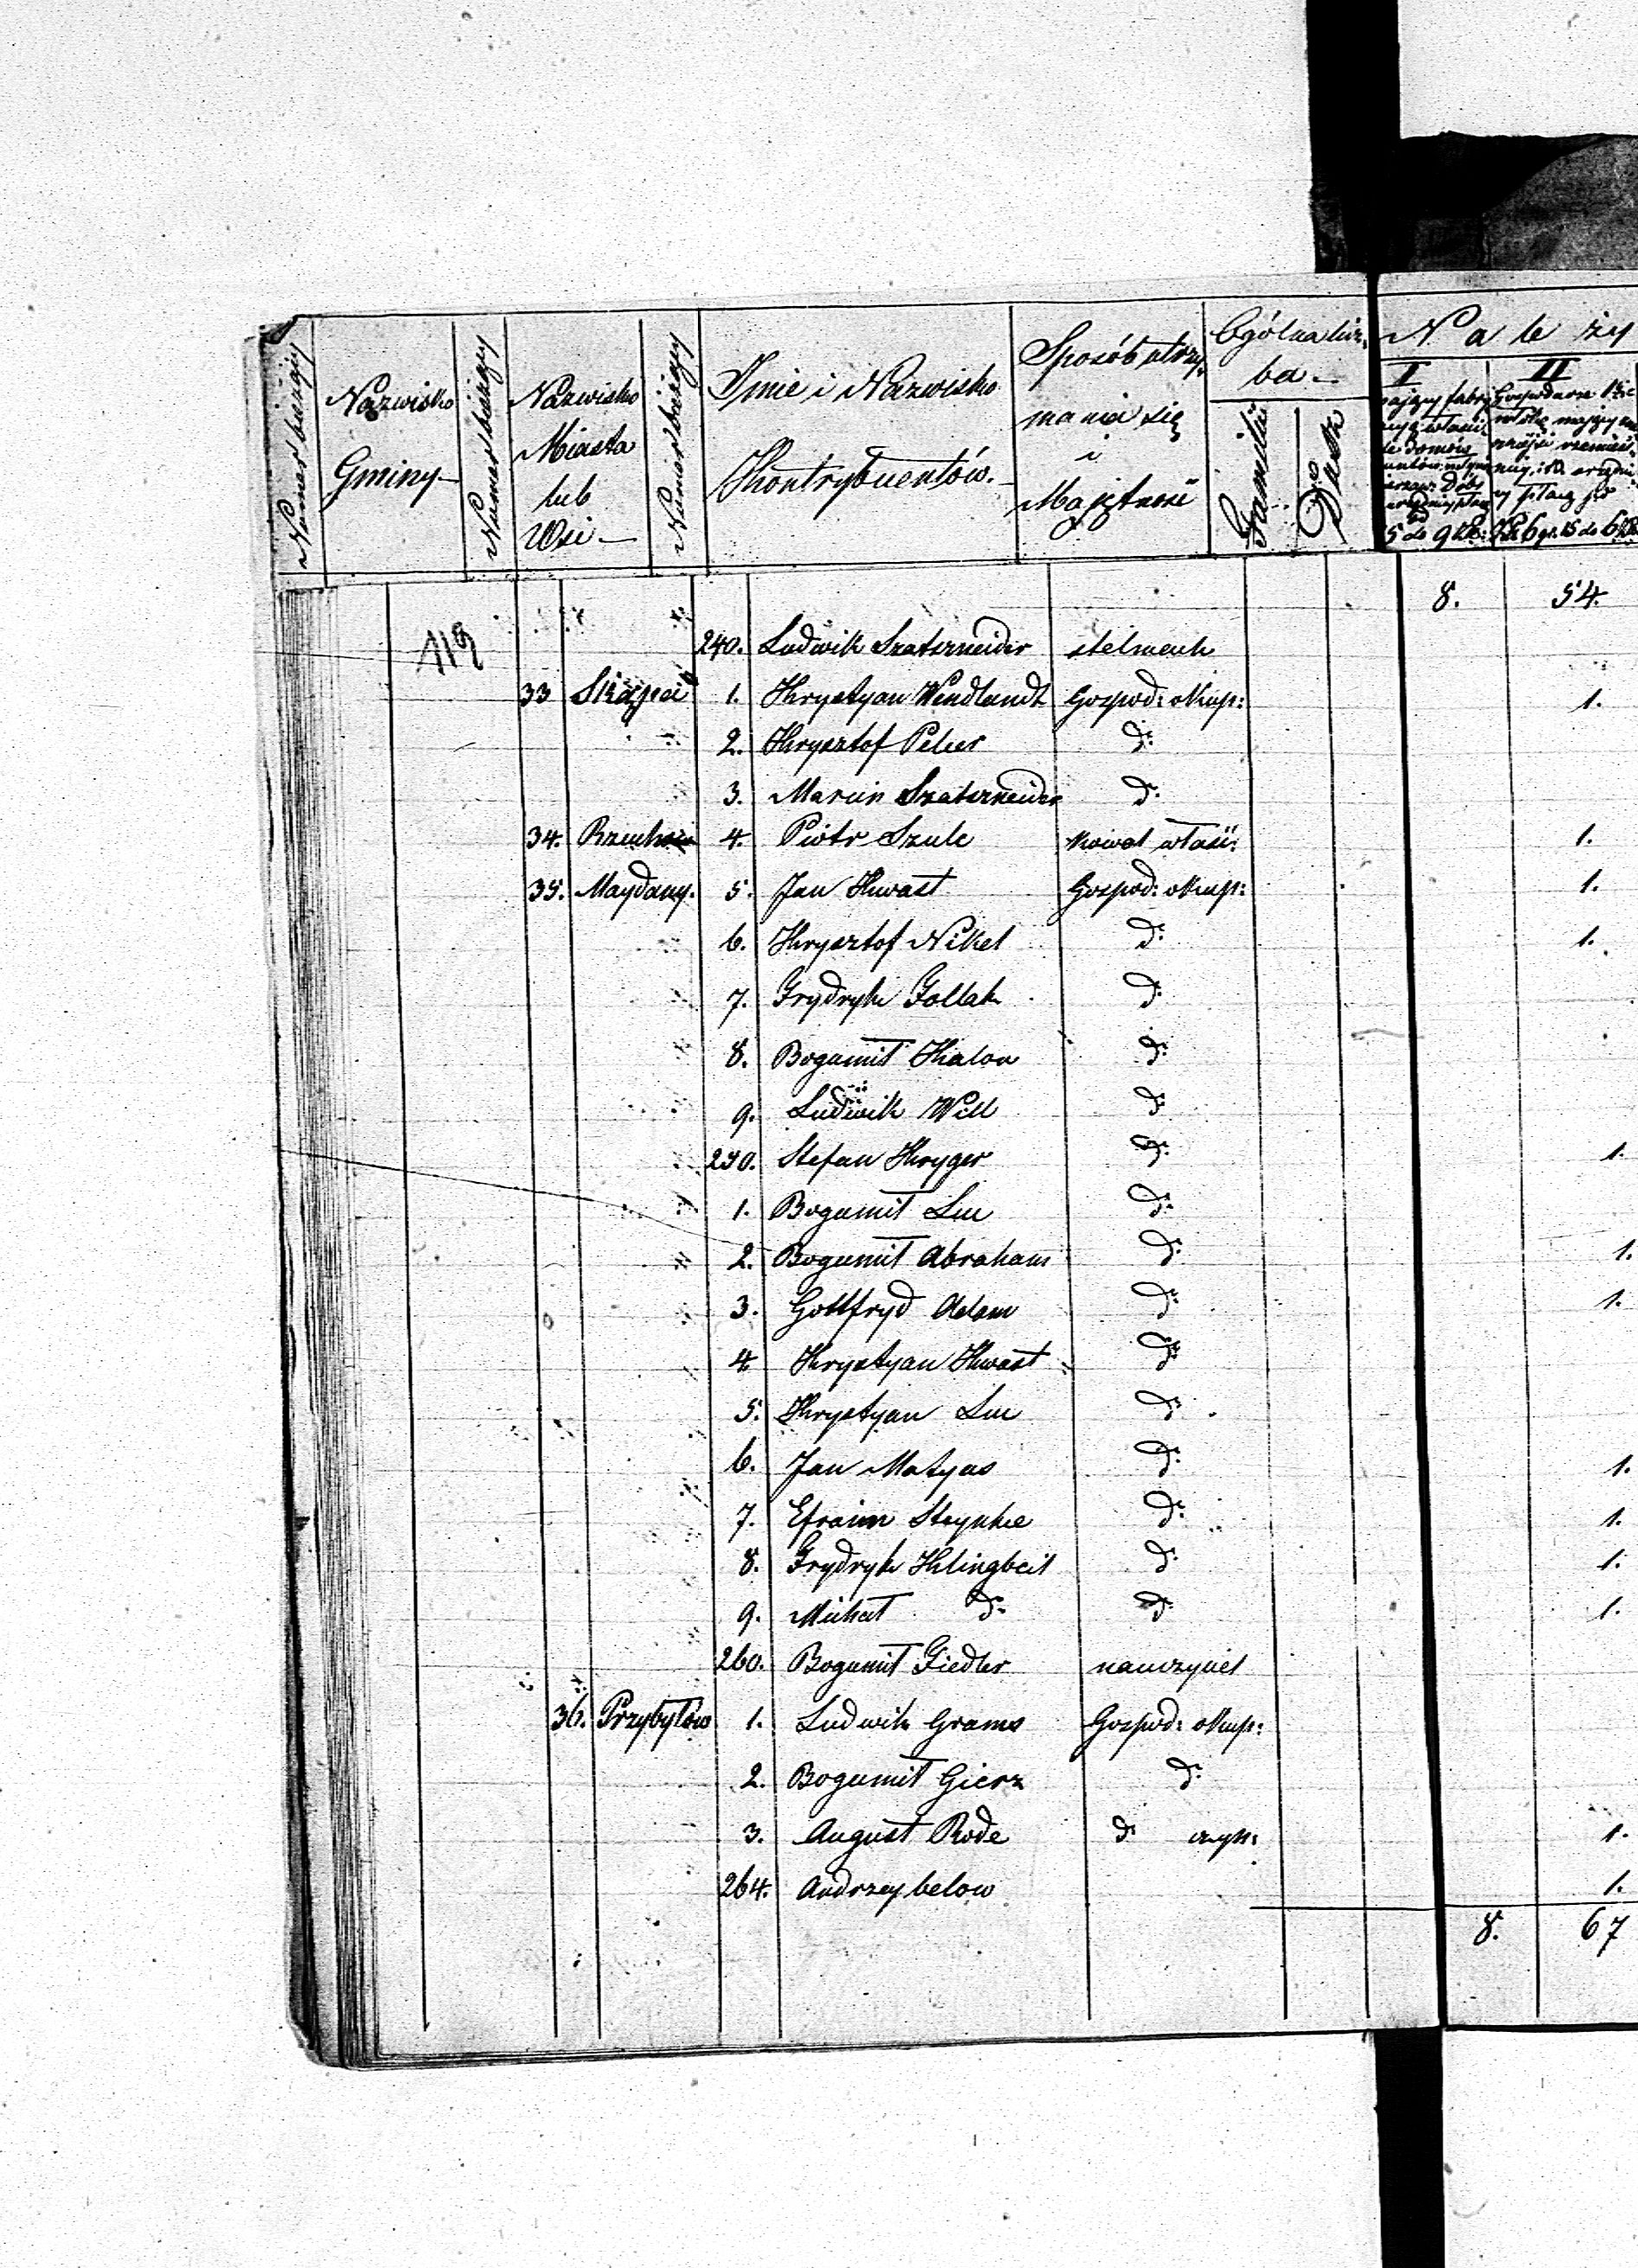 Numer bieżący
Nazwisko Gminy
Numer bieżący
Nazwisko Miasta lub Wsi
Numer bieżący
Imie i Nazwisko Kontrybuentów.
Sposób utrzymania się i Majętność
Ogólna liczba
Familii
Dusz
N a l e ży
I
II
5 do 9
8. 54.
119
240. Ludwik Szatszneider stelmach
33 Skąpa 1. Krystyan Wendlandt Gospod: okup: 1.
2. Krysztof Peler d:
3. Marcin Szatszneider d:
34. 4. Piotr Szulc kowal właś: 1.
35. Maydany. 5. Jan Kwast Gospod: okup: 1.
6. Krysztof Nikel d: 1.
7. Frydryk Follak d:
8. Bogumił Kalow d:
9. Ludwik Will d:
250. Stefan Kryger d: 1.
1. Bogumił Luc d:
2. Bogumił Abraham d: 1.
3. Gottfryd Adam d: 1.
4 Krystyan Kwast d:
5. Krystyan Luc d:
6. Jan Matyas d: 1.
7. Efraim Steynke d: 1.
8. Frydryk Klingbeil d: 1.
9. Michał d: d: 1.
260. Bogumił Fiedler nauczyciel
36. Przybyłów 1. Ludwik Grams Gospod: okup:
2. Bogumił Gierz d:
3. August Rode d: czyn: 1.
264. Andrzey below 1.
8. 67